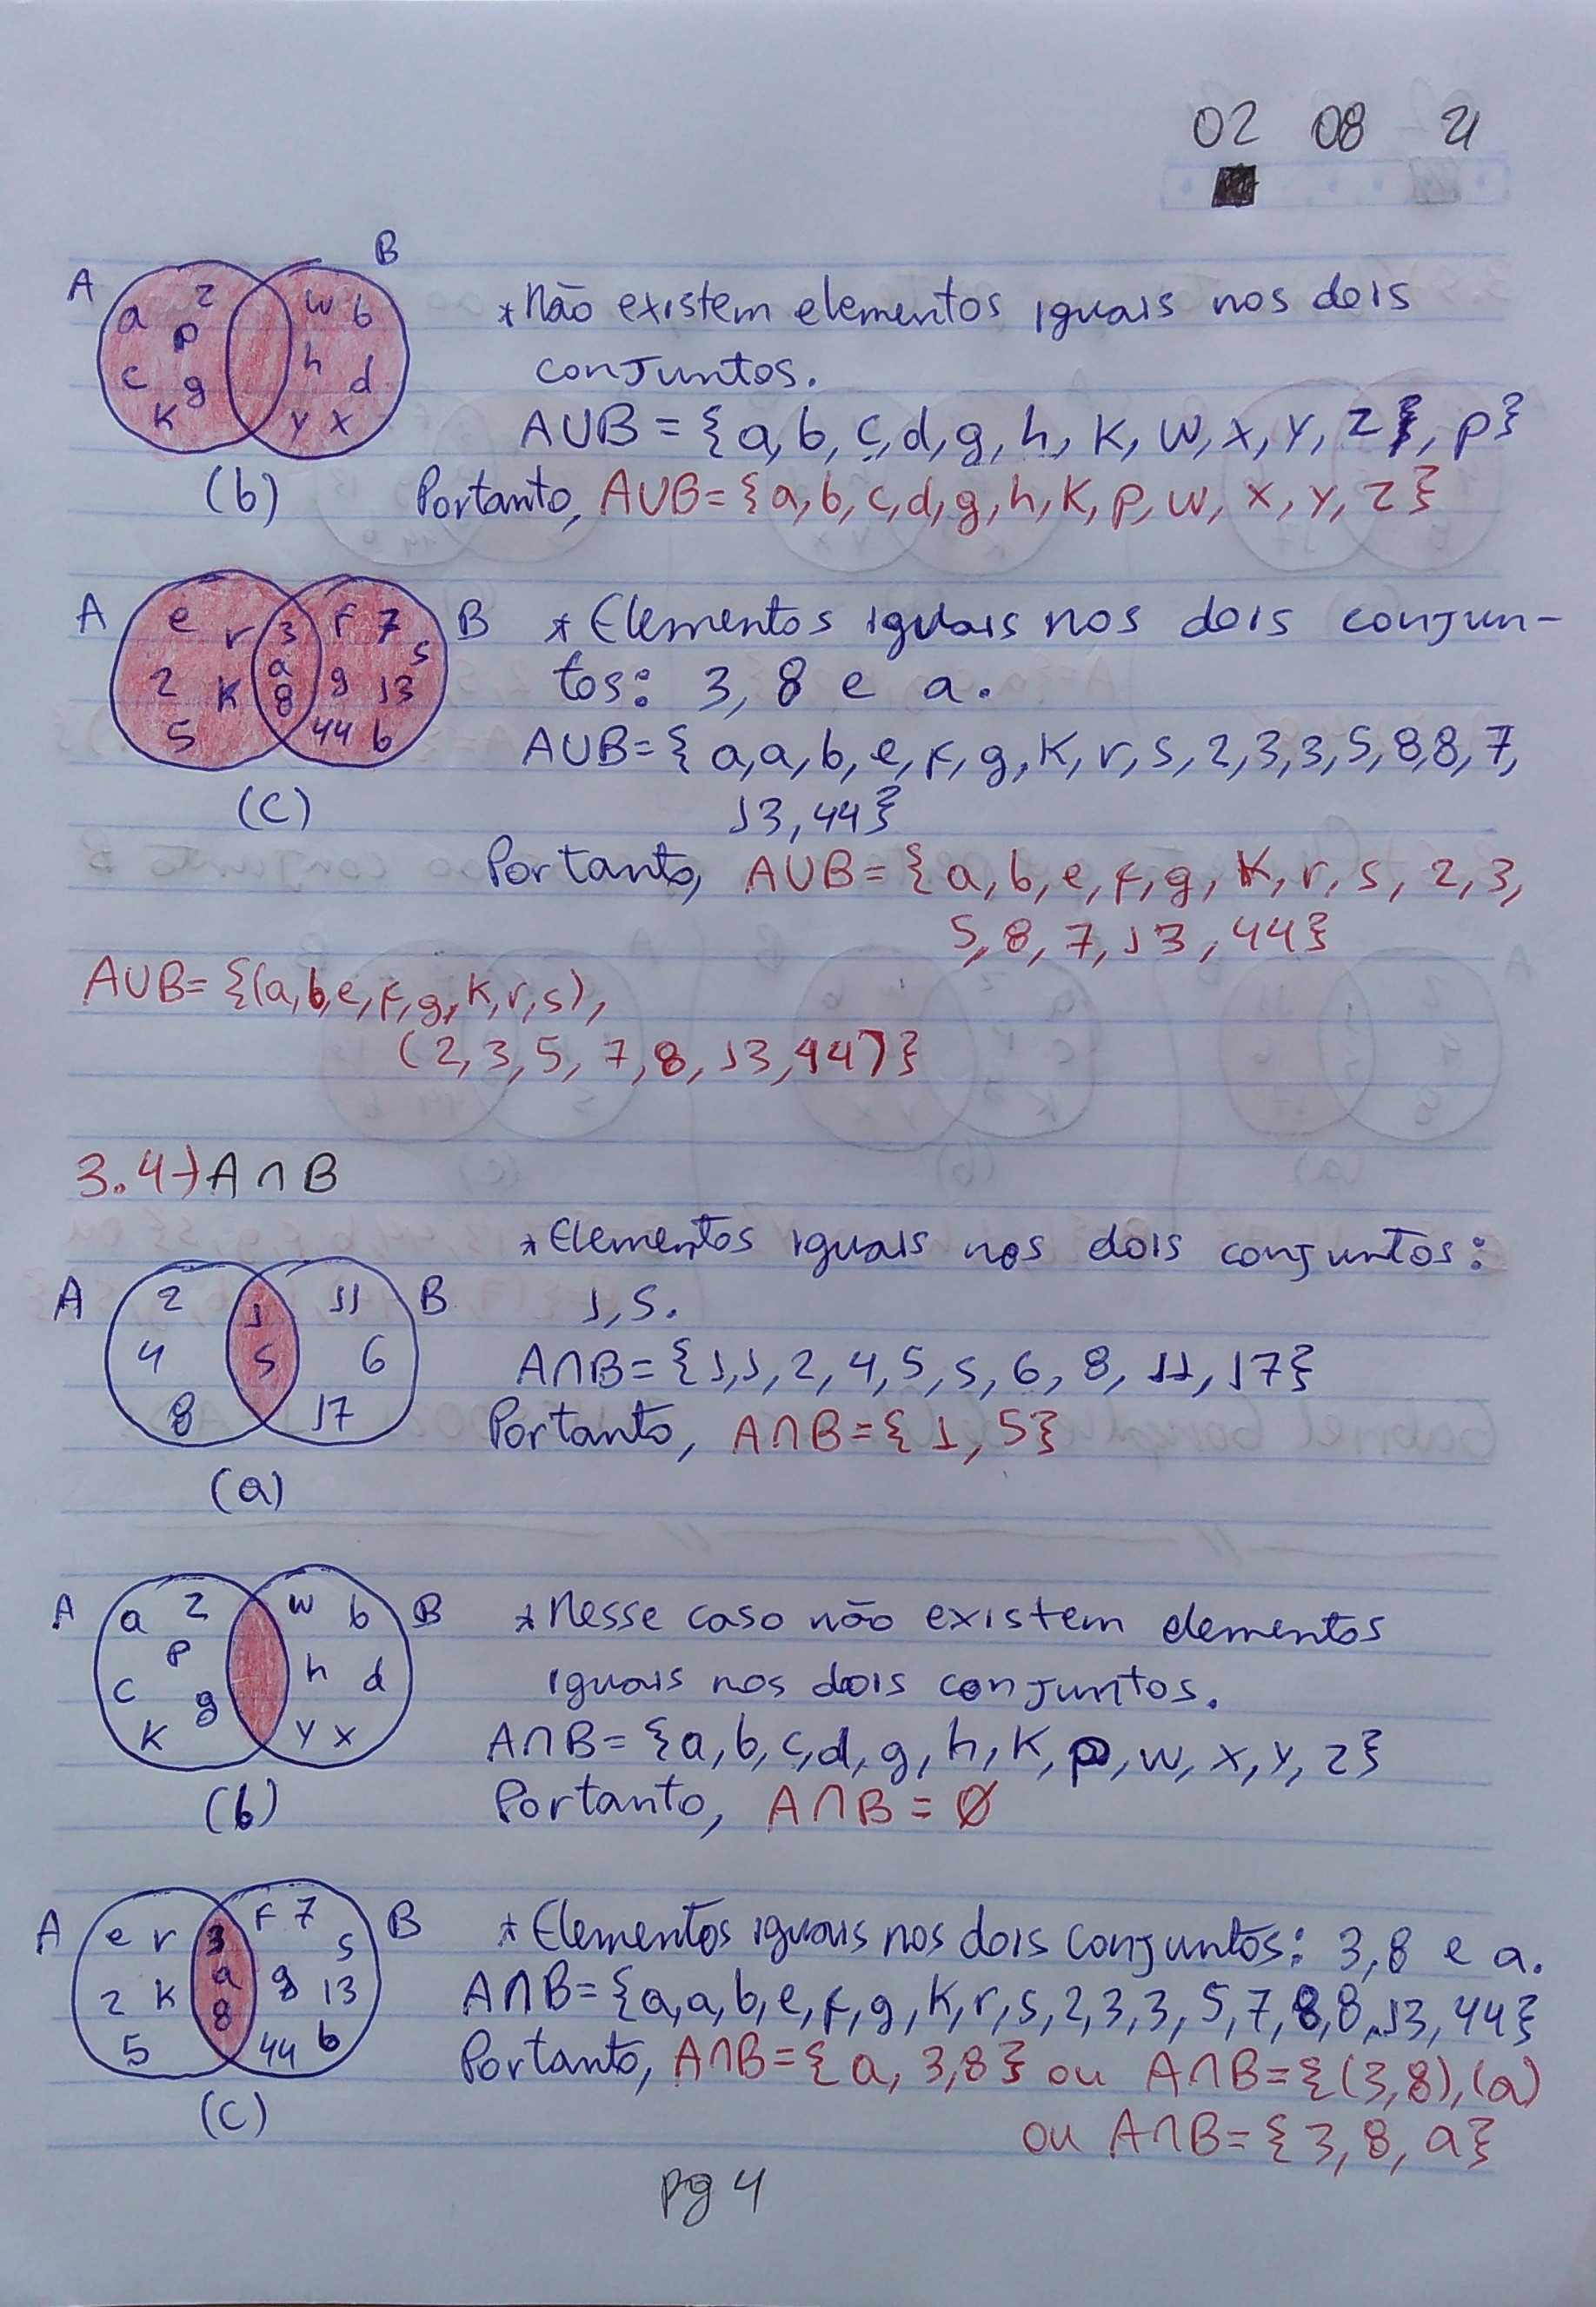 02 08 21
A B
a z w b
p h
c g d
k y x
(b)
*Não existem elementos iguais nos dois
conjuntos.
A∪B = {a, b, c, d, g, h, k, w, x, y, z, p}
Portanto, A∪B={a, b, c, d, g, h, k, p, w, x, y, z}
A B
e r 3 f 7 s
2 k a g 13
5 8 44 b
(c)
* Elementos iguais nos dois conjun-
tos: 3, 8 e a.
A∪B={ a,a,b,e,f,g,k,r,s,2,3,3,5,8,8,7,
13,44}
Portanto, A∪B={a,b,e,f,g,k,r,s,2,3,
5,8,7,13,44}
A∪B={(a,b,e,f,g,k,r,s),
(2,3,5,7,8,13,44)}
3.4→A∩B
A B
2 1 11
4 5 6
8 17
(a)
*Elementos iguais nos dois conjuntos:
1,5.
A∩B={1,1,2,4,5,5,6,8,11,17}
Portanto, A∩B={1,5}
A B
a z w b
p h d
c g
k y x
(b)
*Nesse caso não existem elementos
iguais nos dois conjuntos.
A∩B={a,b,c,d,g,h,k,p,w,x,y,z}
Portanto, A∩B=∅
A B
e r 3 f 7 s
2 k a g 13
5 8 44 b
(c)
*Elementos iguais nos dois conjuntos: 3,8 e a.
A∩B={a,a,b,e,f,g,k,r,s,2,3,3,5,7,8,8,13,44}
Portanto, A∩B={a,3,8} ou A∩B={(3,8),(a)
ou A∩B={3,8,a}
pg 4